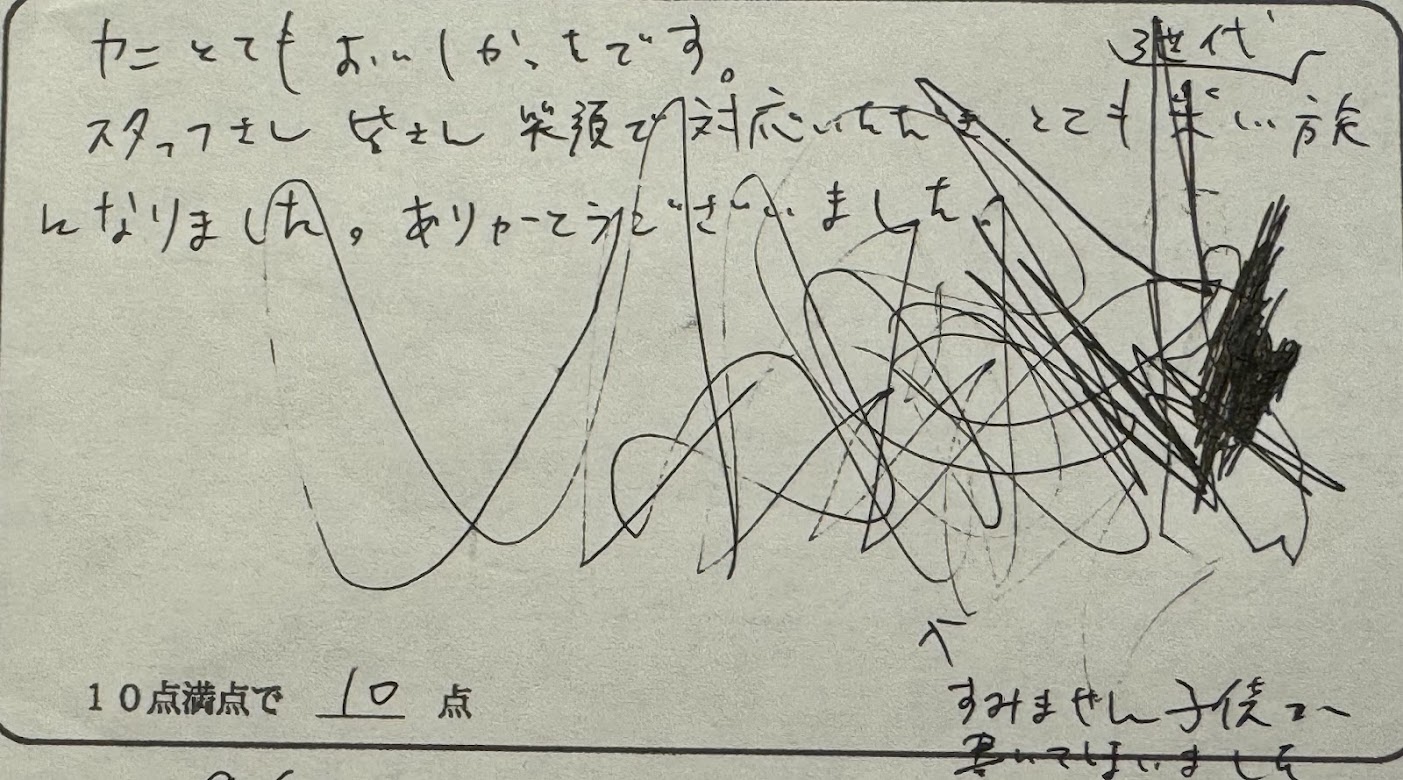 カニとてもおいしかったです。
スタッフさん皆さん笑顔で対応いただき、とても楽しい3世代旅
になりました。ありがとうございました。
10点満点で 10 点
すみません子供が
書いてしまいました